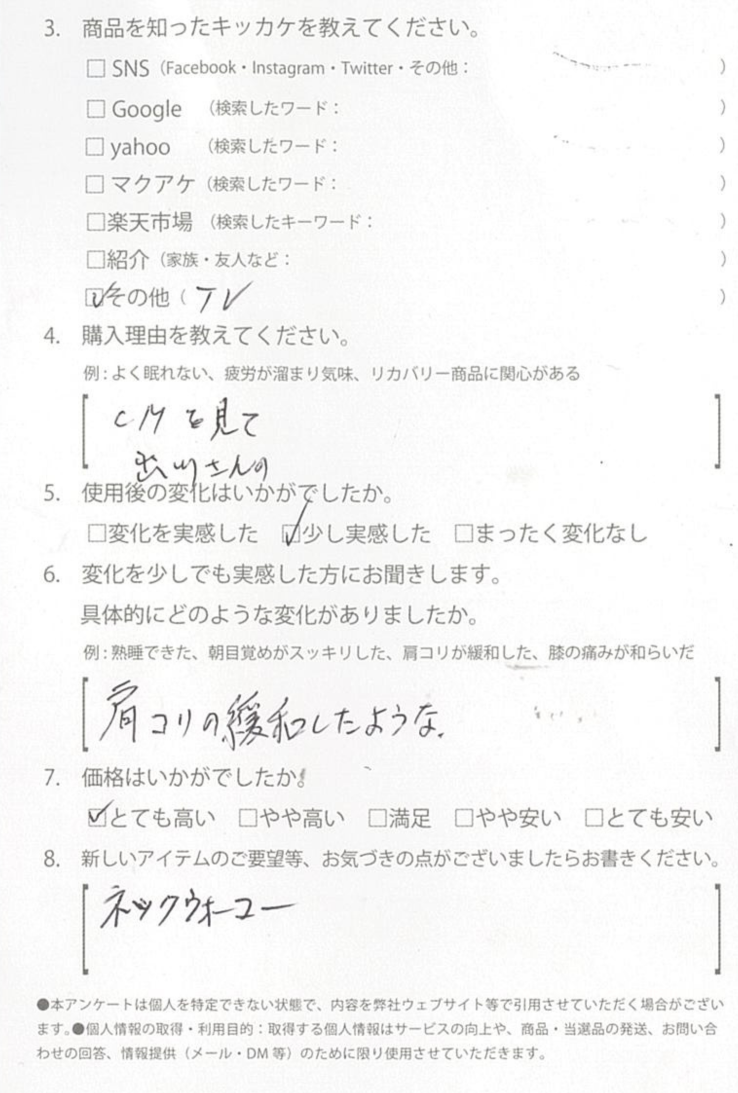 3. 商品を知ったキッカケを教えてください。
□ SNS（Facebook・Instagram・Twitter・その他： ）
□ Google （検索したワード： ）
□ yahoo （検索したワード： ）
□ マクアケ（検索したワード： ）
□楽天市場 （検索したキーワード： ）
□紹介（家族・友人など： ）
☑その他（ TV ）
4. 購入理由を教えてください。
例：よく眠れない、疲労が溜まり気味、リカバリー商品に関心がある
CMを見て
出川さんの
5. 使用後の変化はいかがでしたか。
□変化を実感した ☑少し実感した □まったく変化なし
6. 変化を少しでも実感した方にお聞きします。
具体的にどのような変化がありましたか。
例：熟睡できた、朝目覚めがスッキリした、肩コリが緩和した、膝の痛みが和らいだ
肩コリの緩和したような。
7. 価格はいかがでしたか。
☑とても高い □やや高い □満足 □やや安い □とても安い
8. 新しいアイテムのご要望等、お気づきの点がございましたらお書きください。
ネックウォーコー
●本アンケートは個人を特定できない状態で、内容を弊社ウェブサイト等で引用させていただく場合がござい
ます。●個人情報の取得・利用目的：取得する個人情報はサービスの向上や、商品・当選品の発送、お問い合
わせの回答、情報提供（メール・DM 等）のために限り使用させていただきます。